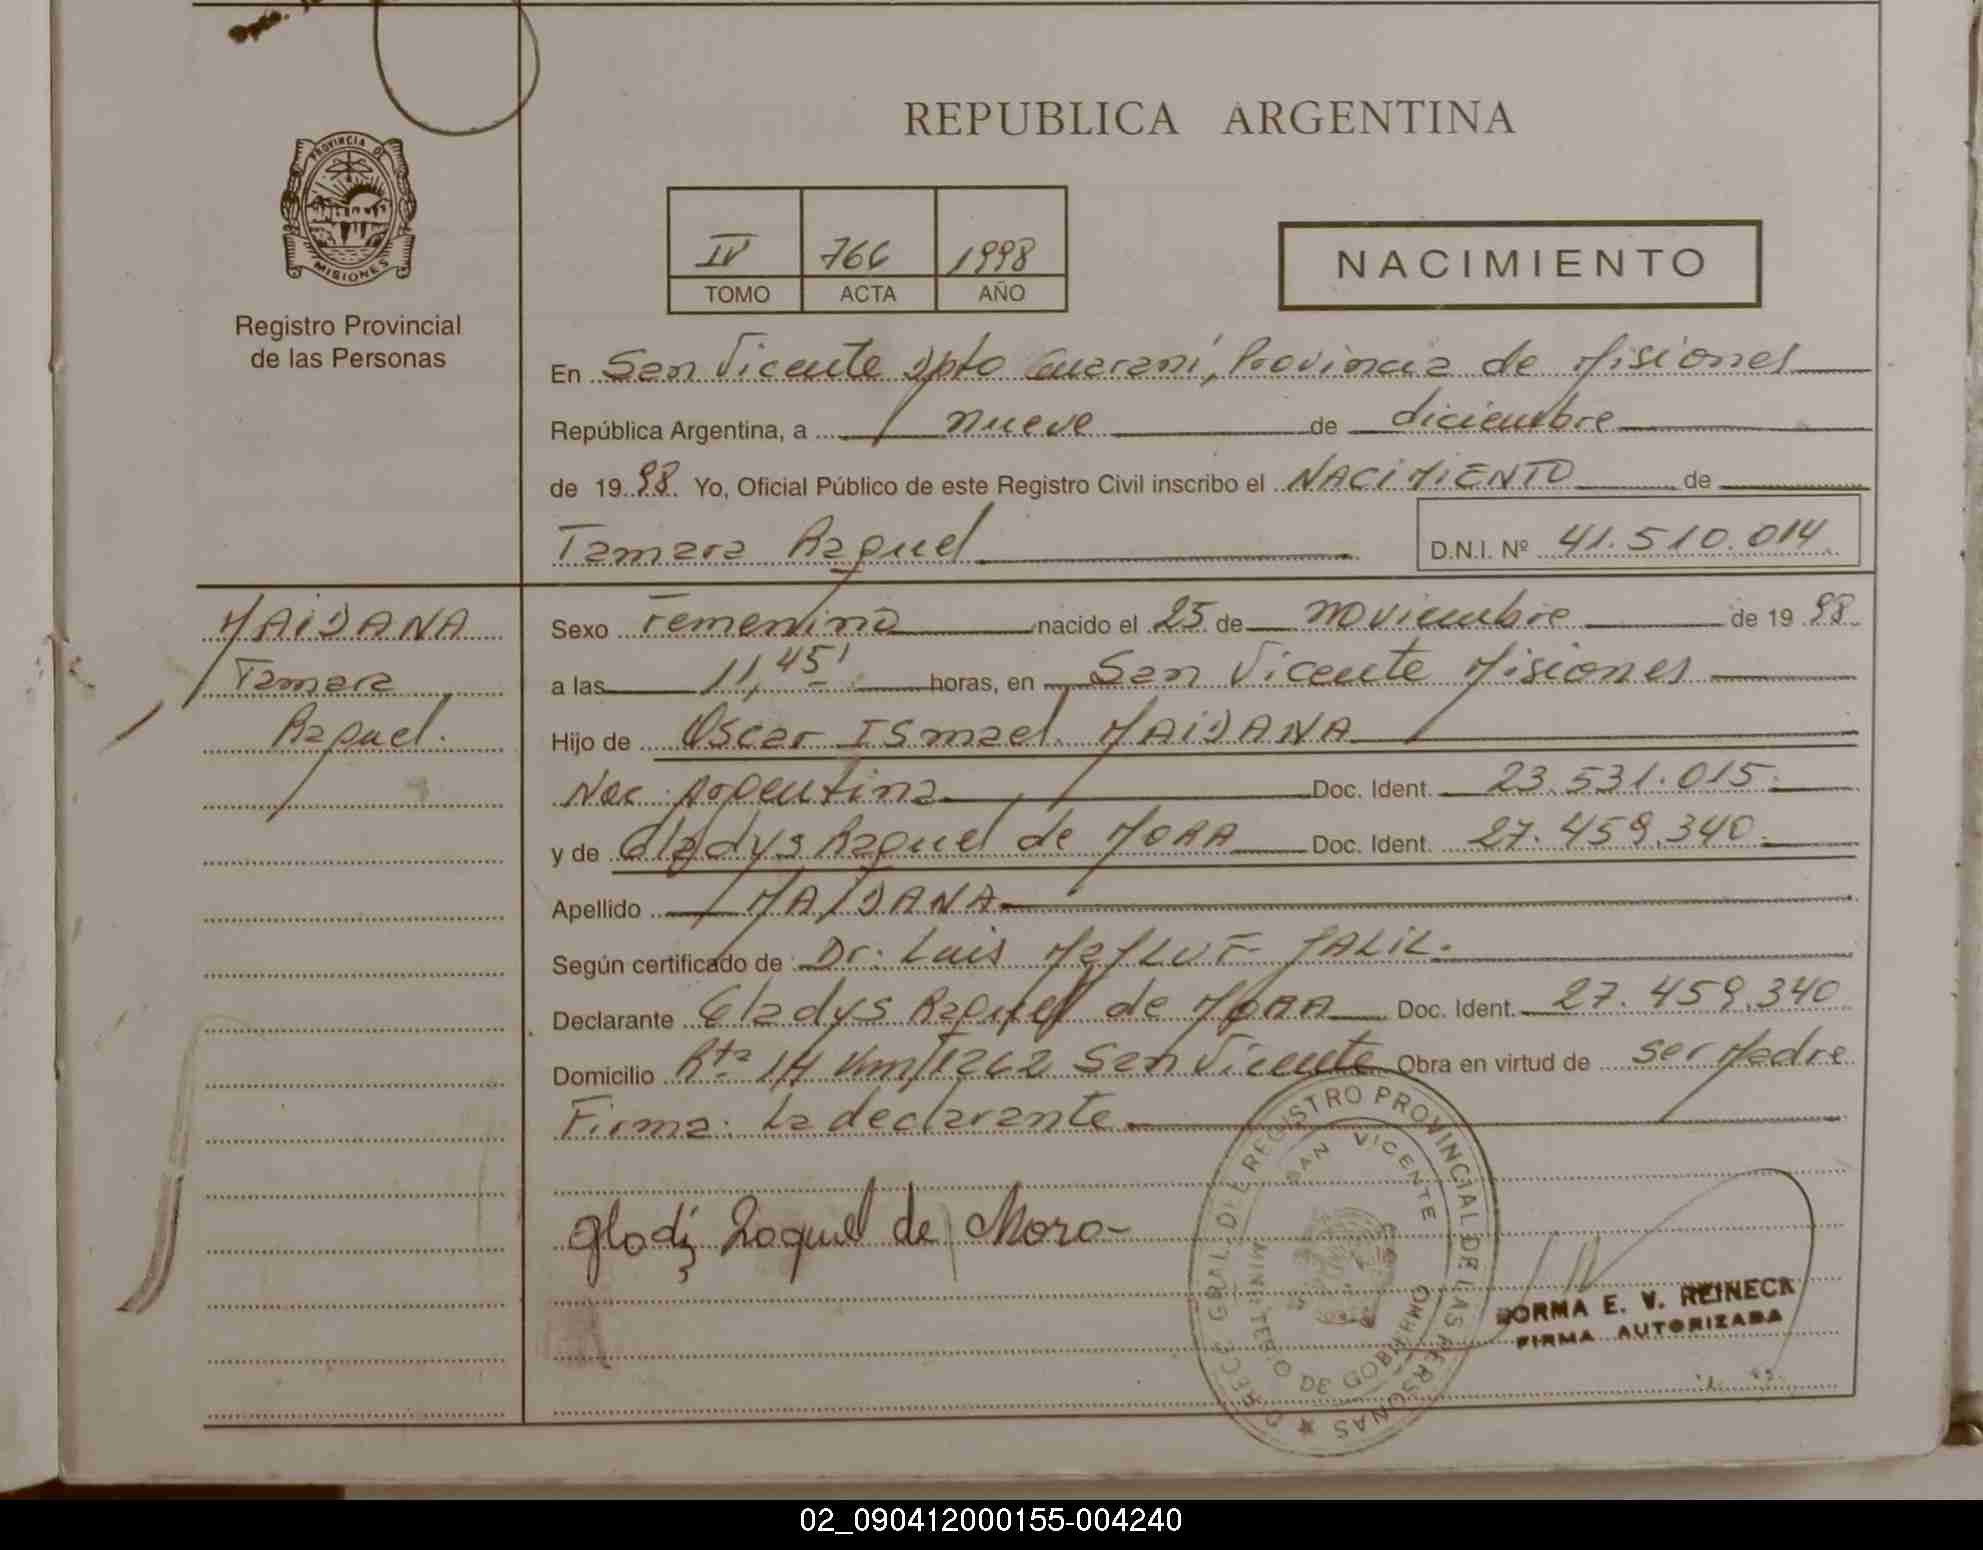 PROVINCIA DE
MISIONES
Registro Provincial
de las Personas
REPUBLICA ARGENTINA
IV 766 1998
TOMO ACTA AÑO
NACIMIENTO
En San Vicente Dpto Guaraní, Provincia de Misiones
República Argentina, a nueve de diciembre
de 1998. Yo, Oficial Público de este Registro Civil inscribo el NACIMIENTO de
Tamara Raquel D.N.I. Nº 41.510.014
MAIDANA
Tamara
Raquel.
Sexo Femenino nacido el 25 de noviembre de 1998
a las 11,45' horas, en San Vicente Misiones
Hijo de Oscar Ismael MAIDANA
Nac. Argentina Doc. Ident. 23.531.015.
y de Gladys Raquel de MORA Doc. Ident. 27.459.340.
Apellido MAIDANA
Según certificado de Dr. Luis JALIL.
Declarante Gladys Raquel de MORA Doc. Ident. 27.459.340
Domicilio Rta 14 Km 1262 San Vicente Obra en virtud de ser Madre
Firma: La declarante
Raquel de Mora
DIRECC. GRAL. DEL REGISTRO PROVINCIAL DE LAS PERSONAS
SAN VICENTE
MINISTERIO DE GOBIERNO
NORMA E. V. REINECK
FIRMA AUTORIZADA
02_090412000155-004240